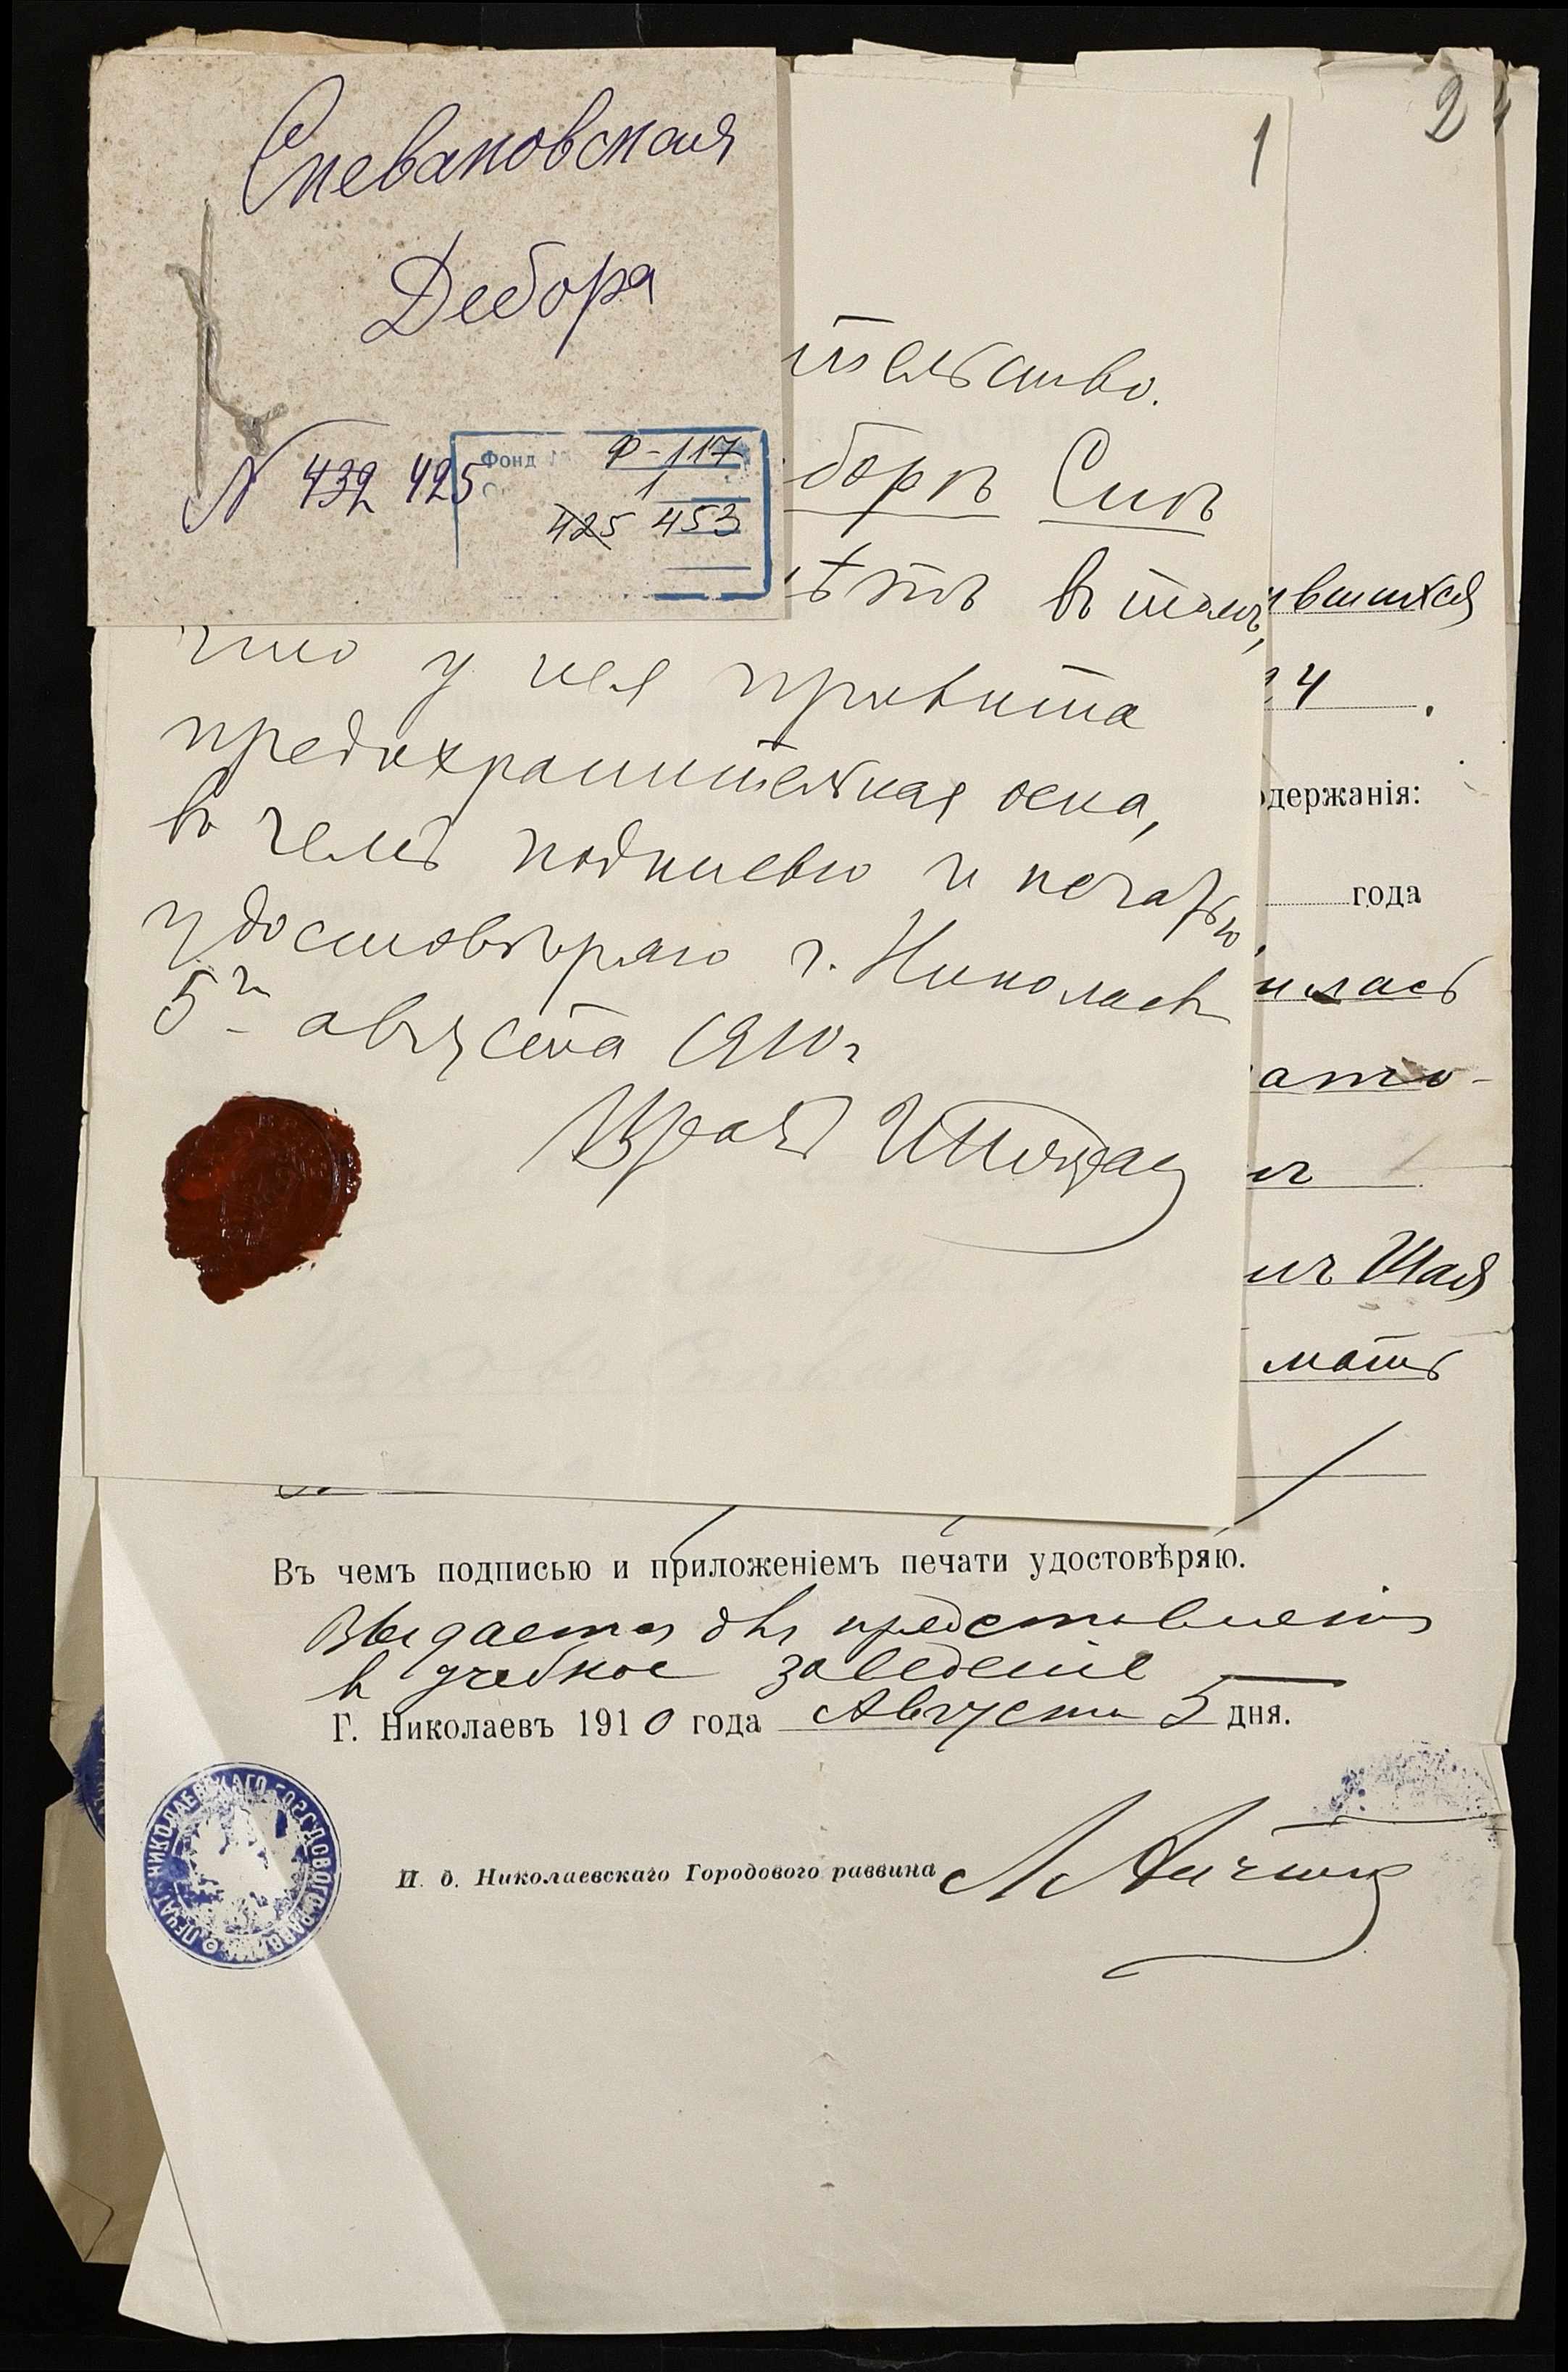 Спеваковская
Дебора
N 432 425
Фонд № Ф-117
1
425 453
1
24
тельство.
боръ Спѣ
въ томъ,
что у нея привита
предохранительная оспа,
въ чемъ подписью и печатью
удостовѣряю г. Николаевъ
5го августа 1910 г
Врачъ
вшихся
24.
одержанія:
года
илась
ич Шая
мать
Въ чемъ подписью и приложеніемъ печати удостовѣряю.
Выдается для представленія
в учебное заведеніе
Г. Николаевъ 1910 года Августа 5 дня.
ПЕЧАТЬ НИКОЛАЕВСКАГО ГОРОДОВОГО РАВВИНА
И. д. Николаевскаго Городового раввина